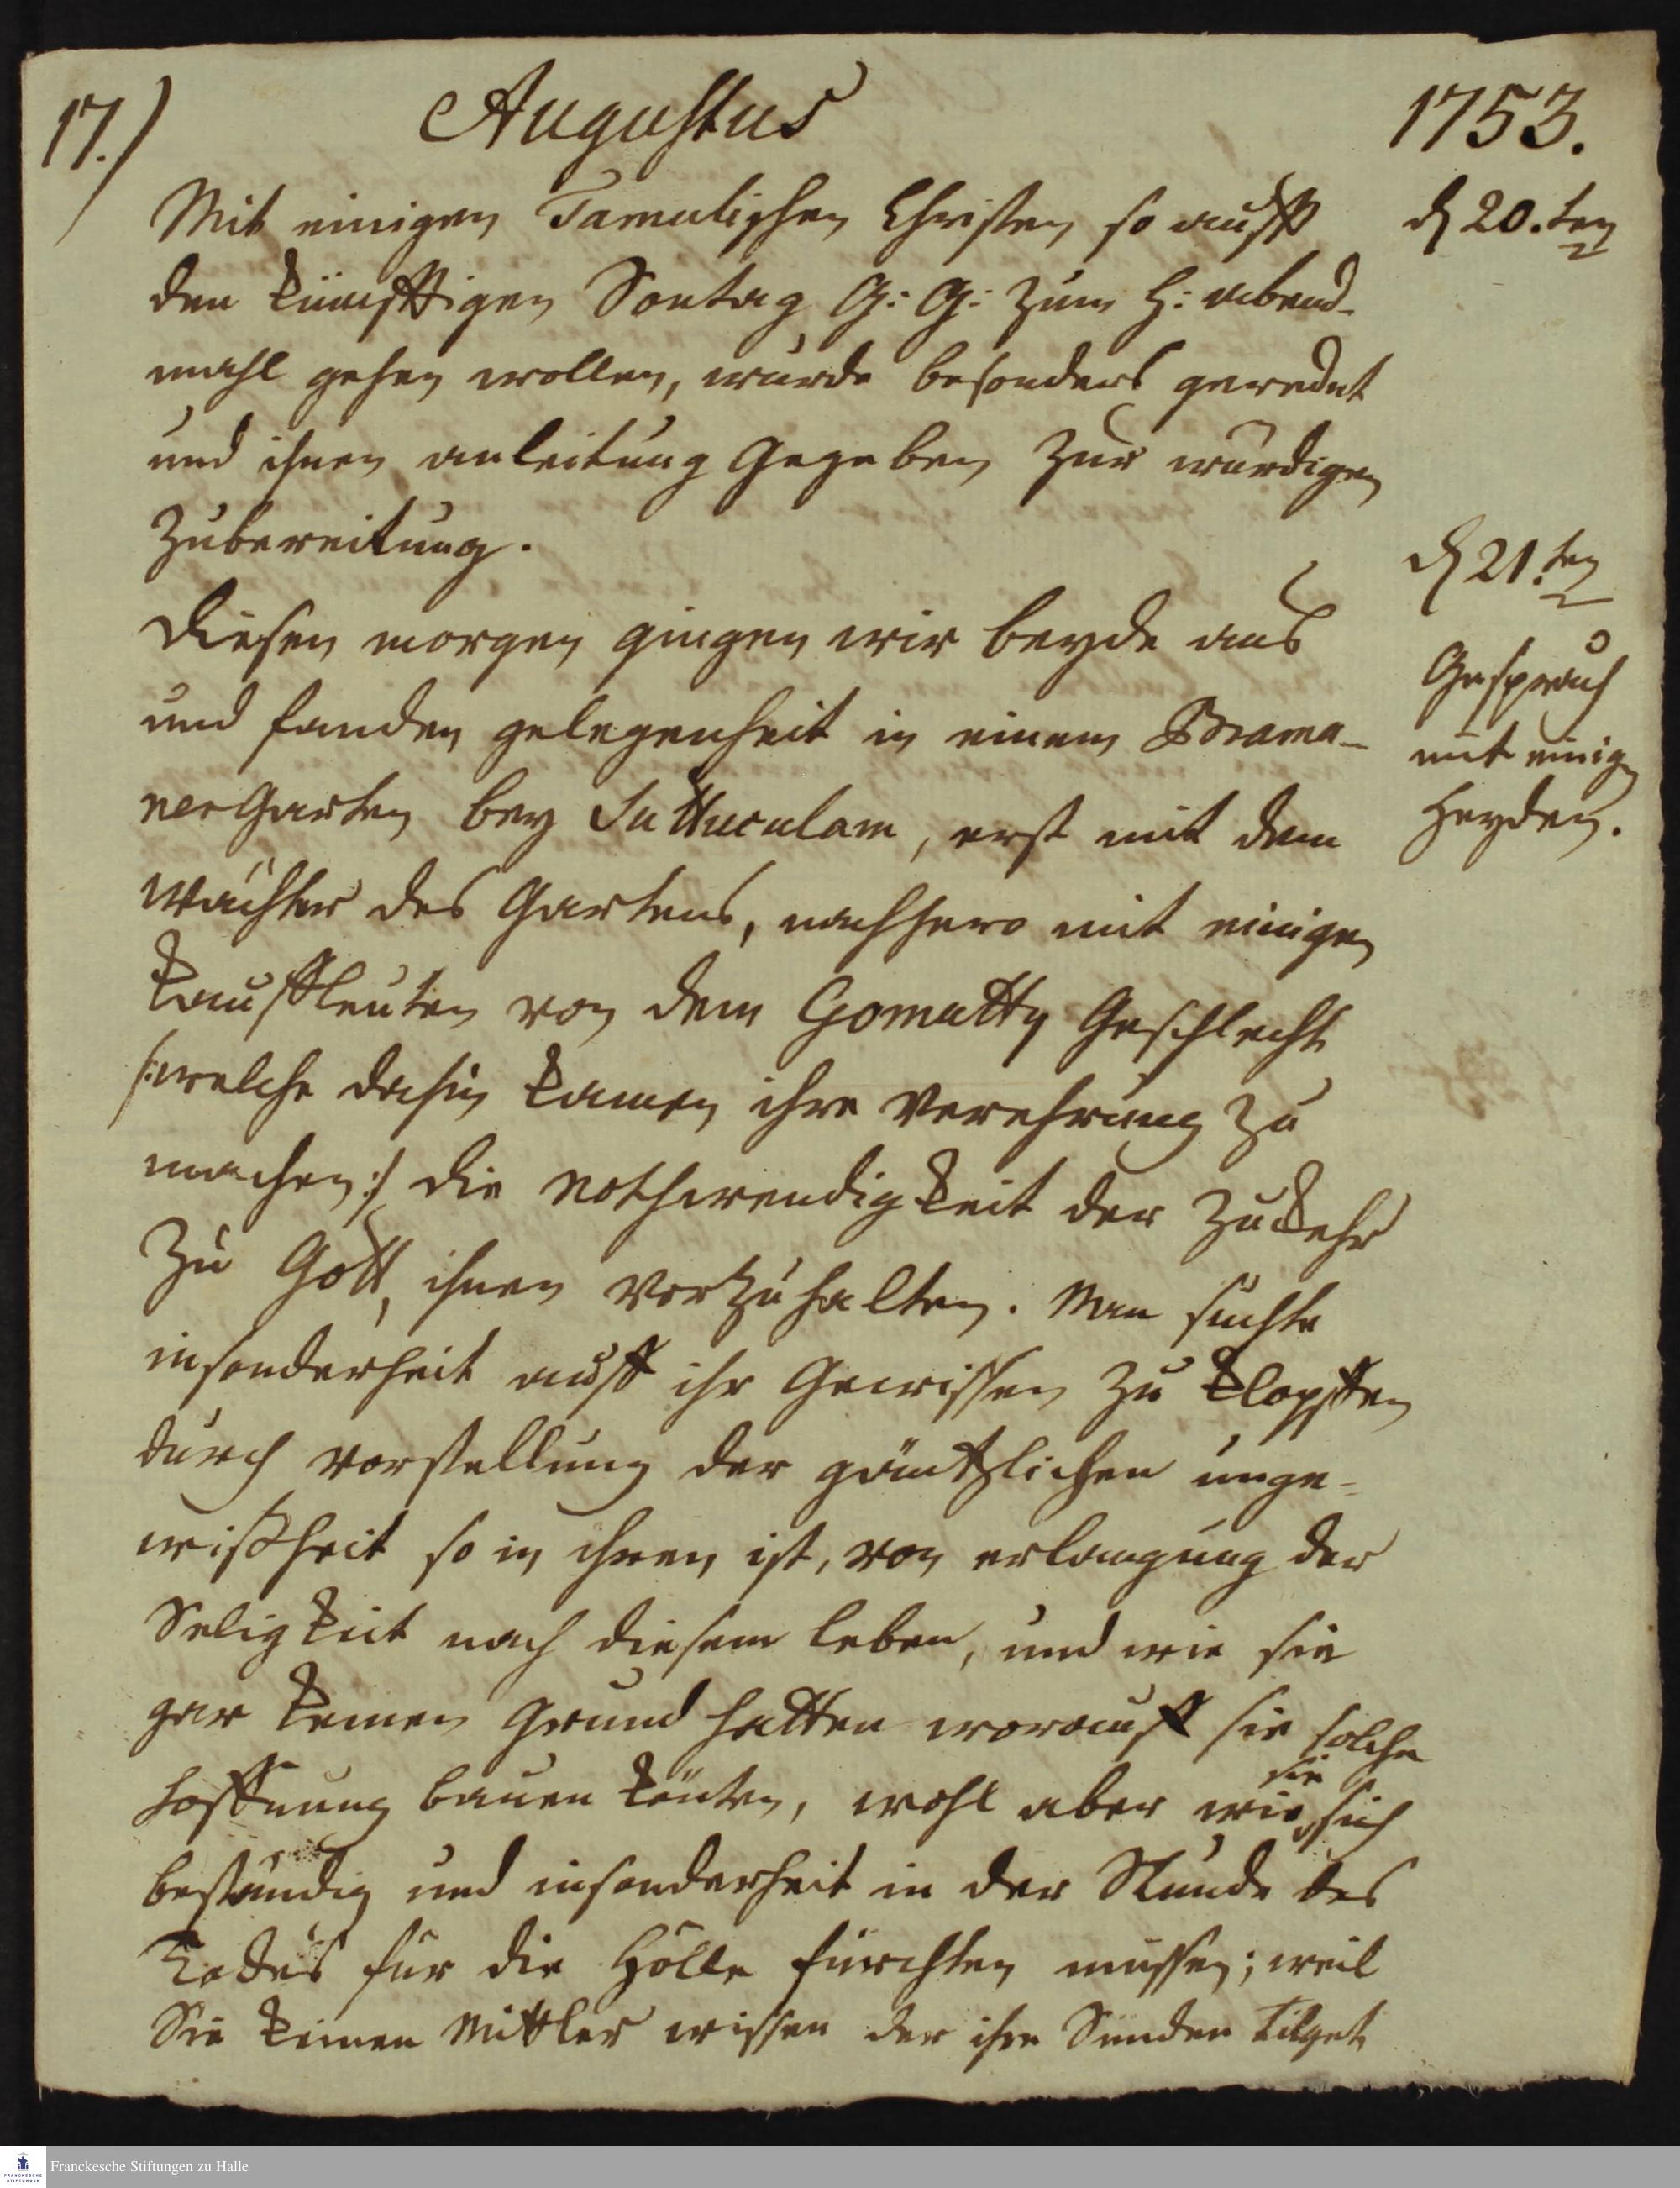 17.) Augustus 1753.
Mit einigen Tamulischen Christen so auff
den künfftigen Sontag G: G: zum H: abend-
mahl gehen wollen, wurde besonders geredet
und ihnen anleitung gegeben zur würdigen
Zubereitung.
Diesen morgen gingen wir beyde aus
und fanden gelegenheit in einem Brama-
ner Garten bey Sattuculam, erst mit dem
wächter des Gartens, nachhero mit einigen
Kauffleuten von dem Gomatty Geschlecht
/:welche dahin kamen ihre Verehrung zu
machen:/ die Nothwendigkeit der Zukehr
zu Gott, ihnen vorzuhalten. Man suchte
insonderheit auff ihr Gewissen zu klopffen
durch vorstellung der gäntzlichen unge-
wißheit so in ihnen ist, von erlangung der
Seligkeit nach diesem leben, und wie sie
gar keinen Grund hatten worauff sie solche
hoffnung bauen könten, wohl aber wie sie sich
beständig und insonderheit in der Stunde des
Todes für die Hölle fürchten müssen; weil
Sie keinen Mittler wissen der ihre Sünden tilget
d 20.ten
d 21.ten
Gespräch
mit einigen
Heyden.
Franckesche Stiftungen zu Halle
FRANCKESCHE
STIFTUNGEN